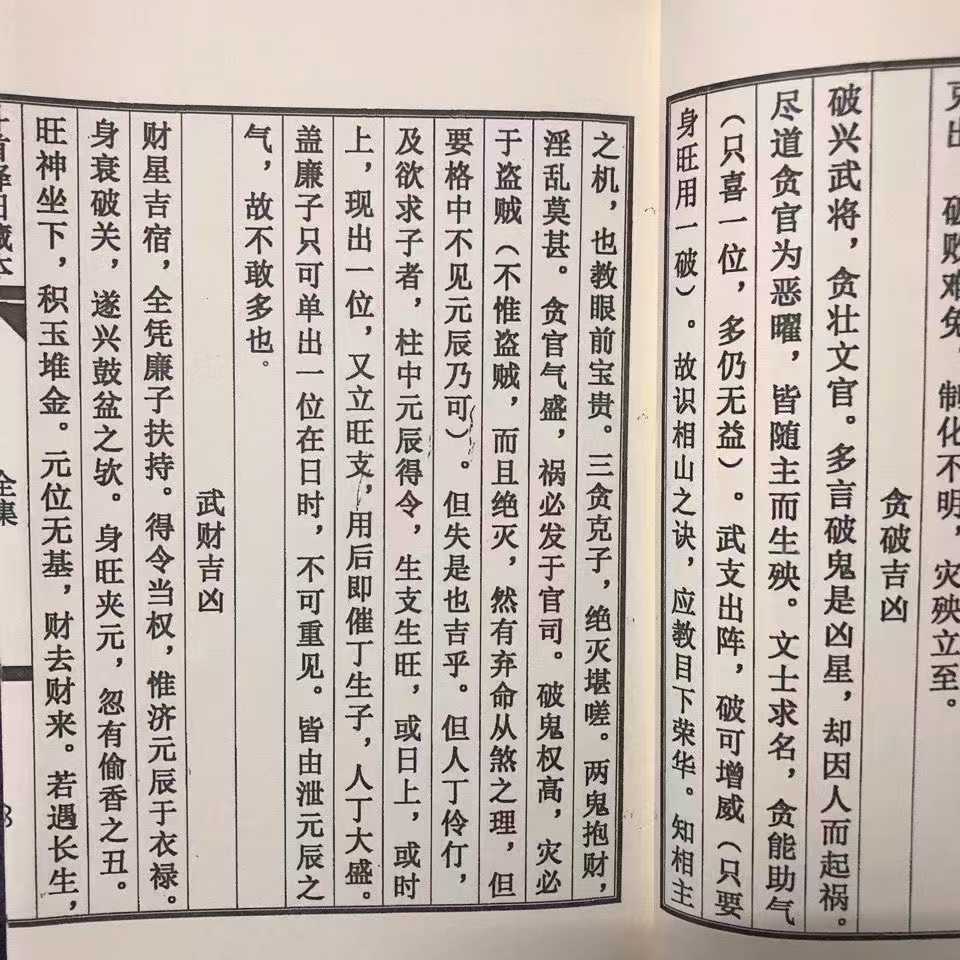 克出，破败难免，制化不明，灾殃立至。
贪破吉凶
破兴武将，贪壮文官。多言破鬼是凶星，却因人而起祸。
尽道贪官为恶曜，皆随主而生殃。文士求名，贪能助气
（只喜一位，多仍无益）。武支出阵，破可增威（只要
身旺用一破）。故识相山之诀，应教目下荣华。知相主
之机，也教眼前宝贵。三贪克子，绝灭堪嗟。两鬼抱财，
淫乱莫甚。贪官气盛，祸必发于官司。破鬼权高，灾必
于盗贼（不惟盗贼，而且绝灭，然有弃命从煞之理，但
要格中不见元辰乃可）。但失是也吉乎。但人丁伶仃，
及欲求子者，柱中元辰得令，生支生旺，或日上，或时
上，现出一位，又立旺支，用后即催丁生子，人丁大盛。
盖廉子只可单出一位在日时，不可重见。皆由泄元辰之
气，故不敢多也。
武财吉凶
财星吉宿，全凭廉子扶持。得令当权，惟济元辰于衣禄。
身衰破关，遂兴鼓盆之欤。身旺夹元，忽有偷香之丑。
旺神坐下，积玉堆金。元位无基，财去财来。若遇长生，
择日藏本
全集